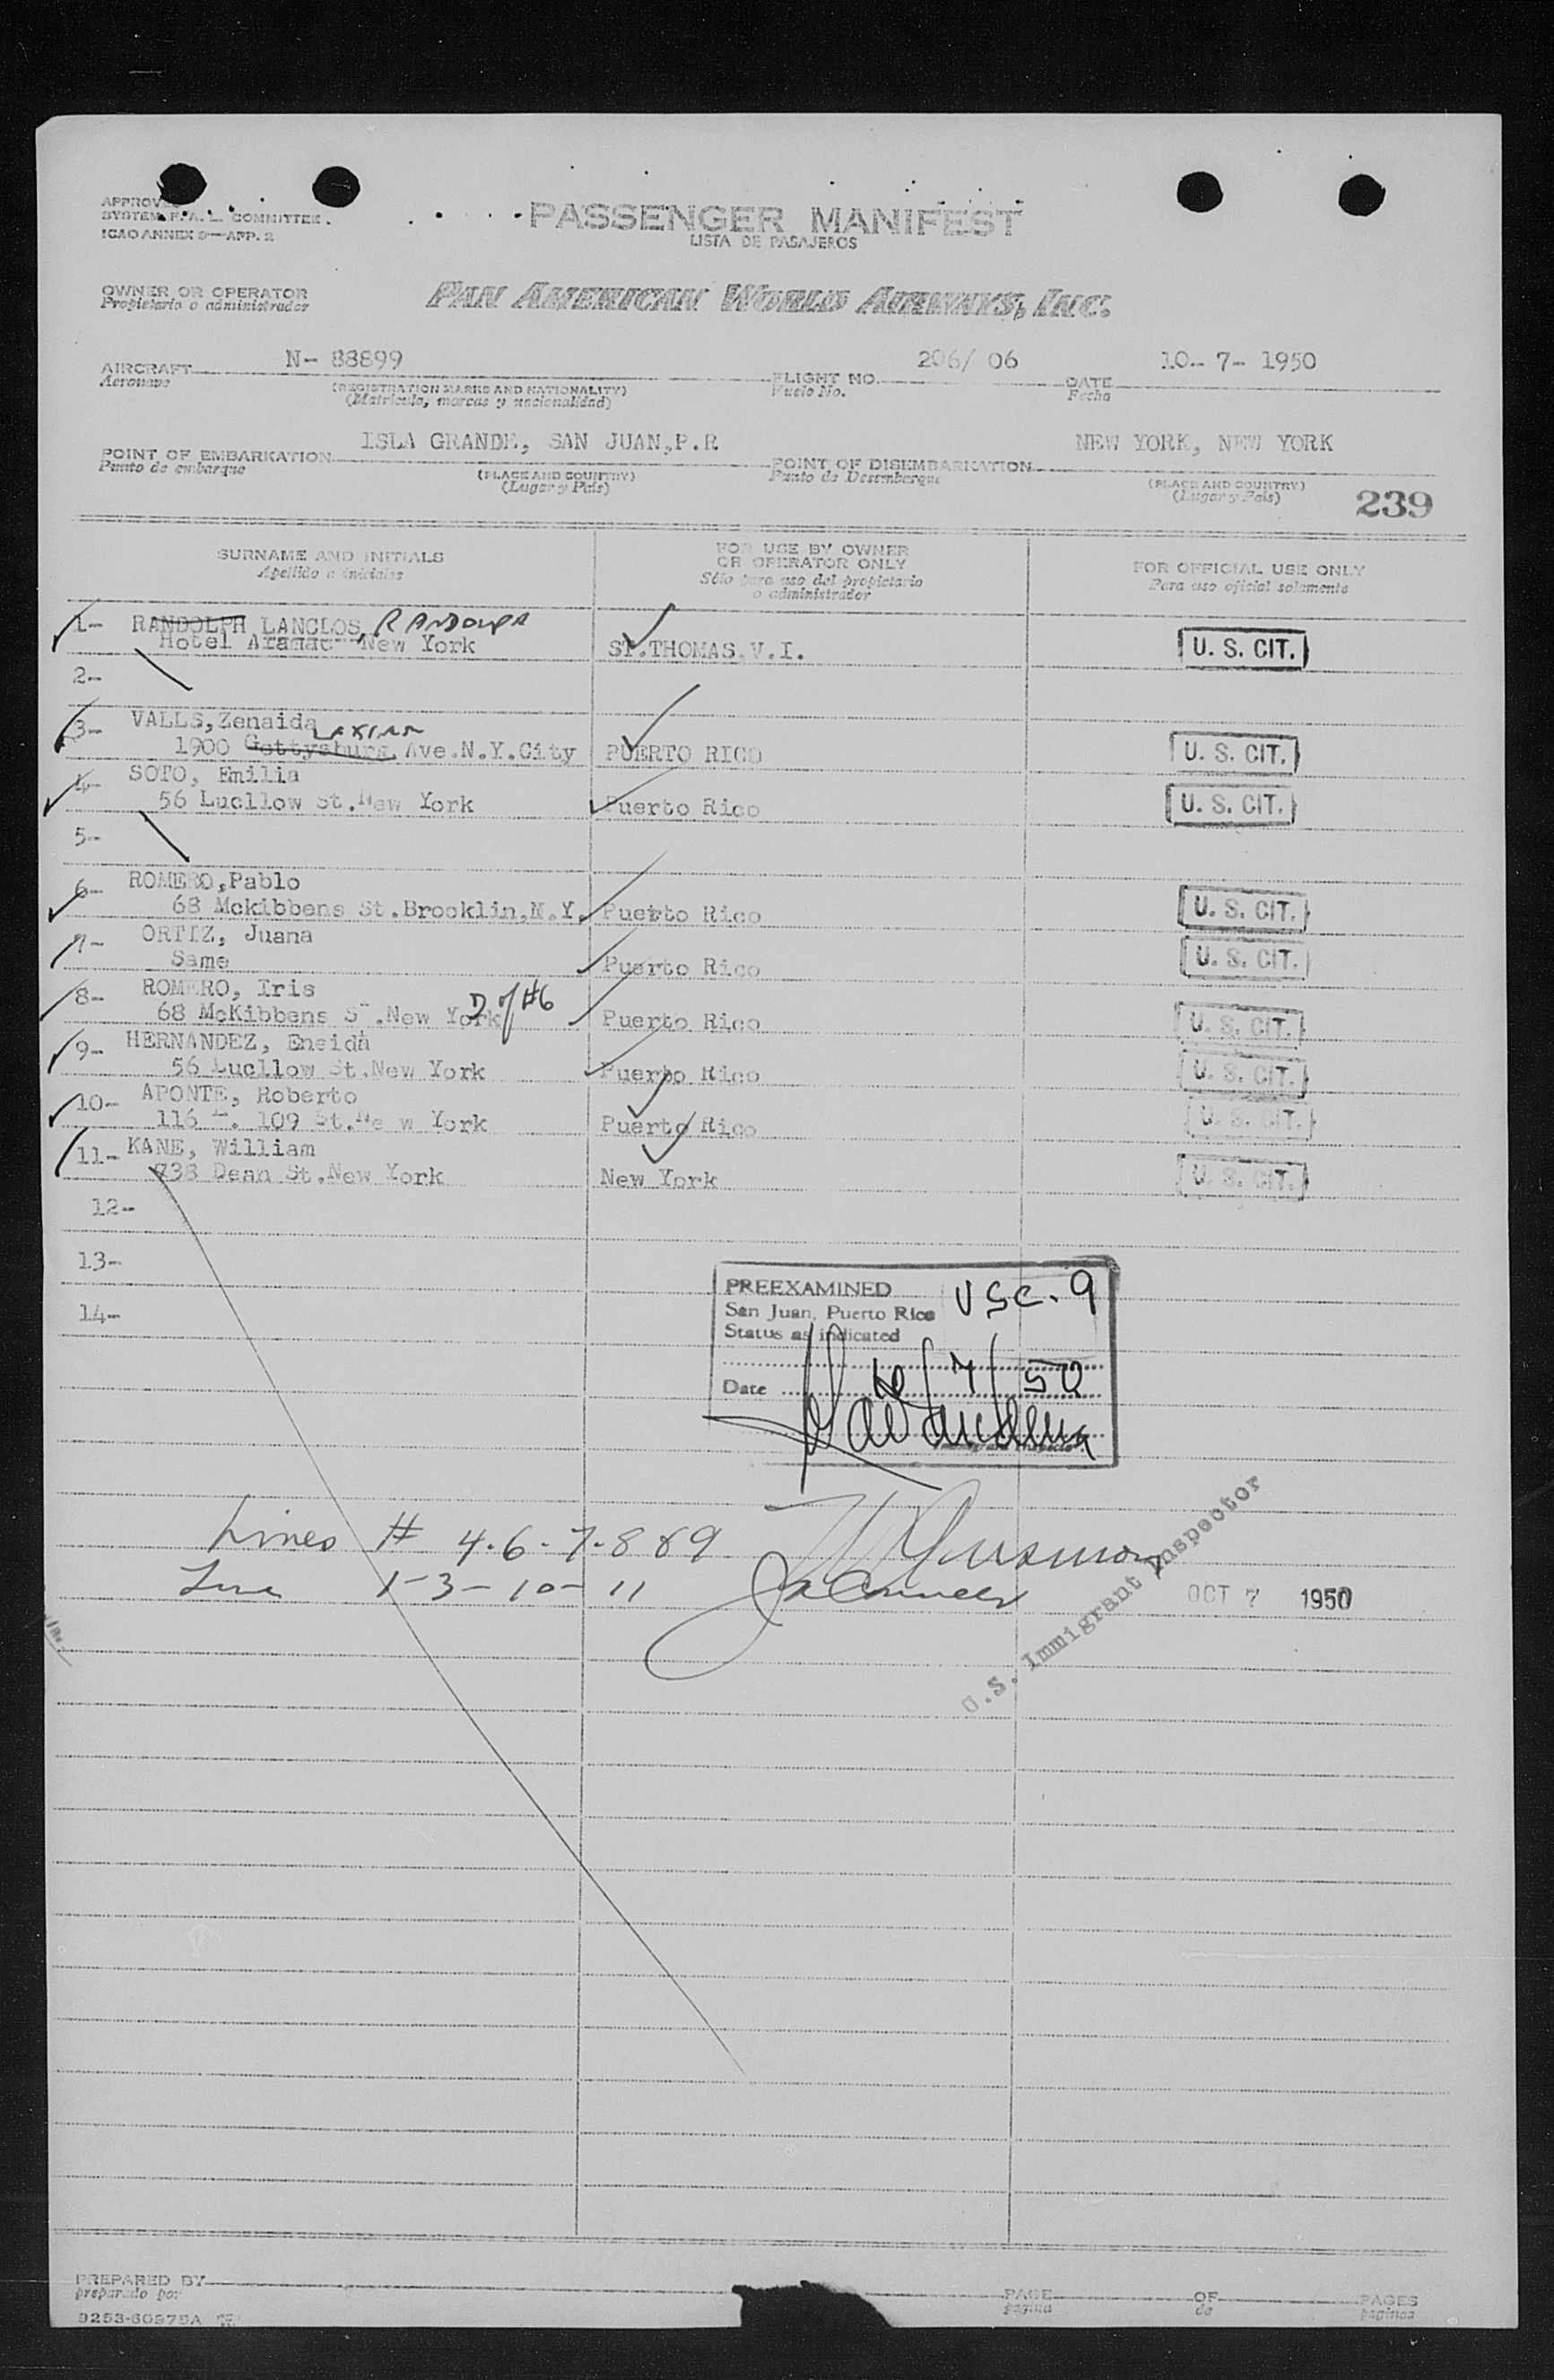 SYSTEM F.A.L. COMMITTEE.
ICAO ANNEX 9—APP. 2
PASSENGER MANIFEST
LISTA DE PASAJEROS
OWNER OR OPERATOR
Propietario o administrador
PAN AMERICAN WORLD AIRWAYS, INC.
AIRCRAFT N- 88899 FLIGHT NO. 206/ 06 DATE 10- 7- 1950
Aeronave (REGISTRATION MARKS AND NATIONALITY) Vuelo No. Fecha
(Matricula, marcas y nacionalidad)
POINT OF EMBARKATION ISLA GRANDE, SAN JUAN,P.R POINT OF DISEMBARKATION NEW YORK, NEW YORK
Punto de embarque (PLACE AND COUNTRY) Punto de Desembarque (PLACE AND COUNTRY)
(Lugar y País) (Lugar y País)
239
SURNAME AND INITIALS FOR USE BY OWNER OR OPERATOR ONLY FOR OFFICIAL USE ONLY
Apellido e iniciales Sólo para uso del propietario o administrador Para uso oficial solamente
1- RANDOLPH LANCLOS, RANDOLPH
Hotel Aramac New York ST.THOMAS,V.I. U. S. CIT.
2-
3- VALLS,Zenaida
1900 Gettysburg Ave.N.Y.City PUERTO RICO U. S. CIT.
4- SOTO, Emilia
56 Lucllow St.New York Puerto Rico U. S. CIT.
5-
6- ROMERO,Pablo
68 Mckibbens St.Brooklin,N.Y. Puerto Rico U. S. CIT.
7- ORTIZ, Juana
Same Puerto Rico U. S. CIT.
8- ROMERO, Iris
68 McKibbens St.New York D of #6 Puerto Rico U. S. CIT.
9- HERNANDEZ, Eneida
56 Lucllow St.New York Puerto Rico U. S. CIT.
10- APONTE, Roberto
116 E. 109 St.Ne w York Puerto Rico U. S. CIT.
11- KANE, William
738 Dean St.New York New York U. S. CIT.
12-
13-
14-
PREEXAMINED USC. 9
San Juan, Puerto Rico
Status as indicated
Date 10/7/50
Lines # 4-6-7-8 & 9
Line 1-3-10-11
U.S. Immigrant Inspector
OCT 7 1950
PREPARED BY PAGE OF PAGES
preparado por página de páginas
9253-60975A